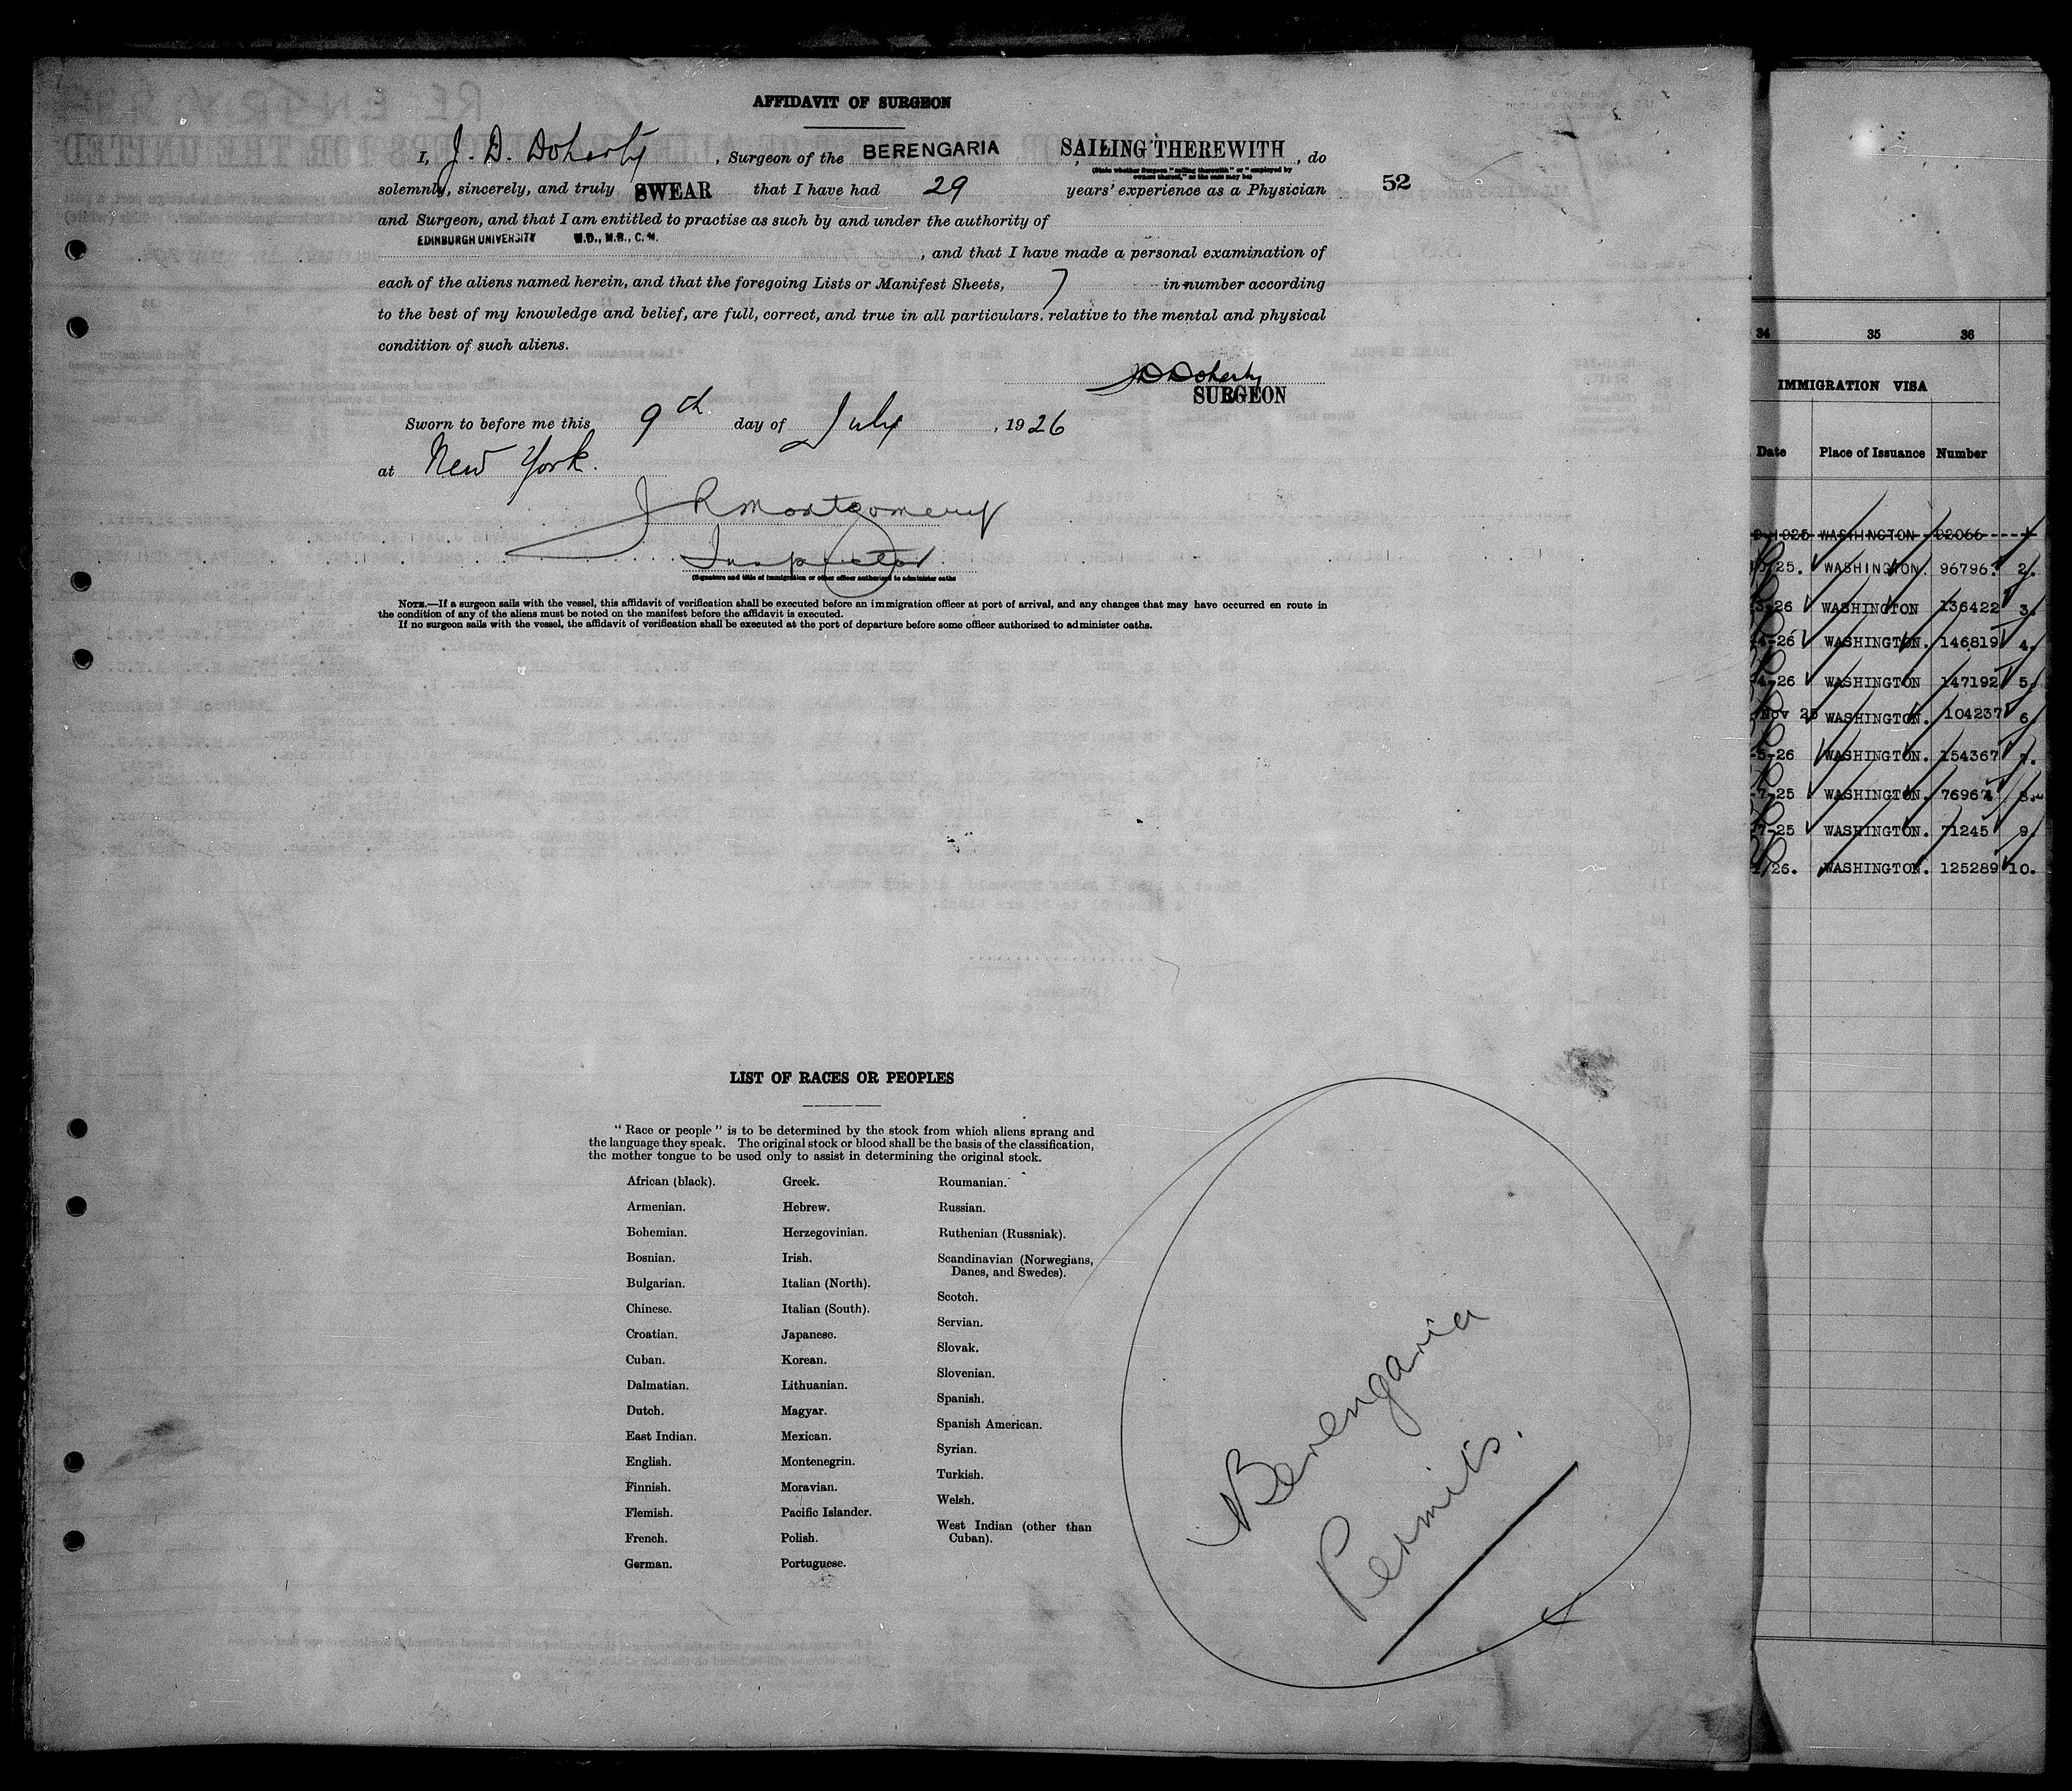 AFFIDAVIT OF SURGEON
I, J. D. Doherty, Surgeon of the BERENGARIA SAILING THEREWITH, do
(State whether Surgeon "sailing therewith" or "employed by
owners thereof," as the case may be)
solemnly, sincerely, and truly SWEAR that I have had 29 years' experience as a Physician
52
and Surgeon, and that I am entitled to practise as such by and under the authority of
EDINBURGH UNIVERSITY M.D., M.B., C.M.
, and that I have made a personal examination of
each of the aliens named herein, and that the foregoing Lists or Manifest Sheets, 7 in number according
to the best of my knowledge and belief, are full, correct, and true in all particulars, relative to the mental and physical
condition of such aliens.
JD Doherty
SURGEON
Sworn to before me this 9th day of July, 1926
at New York.
J R Montgomery
Inspector
(Signature and title of immigration or other officer authorized to administer oaths
NOTE.—If a surgeon sails with the vessel, this affidavit of verification shall be executed before an immigration officer at port of arrival, and any changes that may have occurred en route in
the condition of any of the aliens must be noted on the manifest before the affidavit is executed.
If no surgeon sails with the vessel, the affidavit of verification shall be executed at the port of departure before some officer authorized to administer oaths.
LIST OF RACES OR PEOPLES
"Race or people" is to be determined by the stock from which aliens sprang and
the language they speak. The original stock or blood shall be the basis of the classification,
the mother tongue to be used only to assist in determining the original stock.
African (black).
Armenian.
Bohemian.
Bosnian.
Bulgarian.
Chinese.
Croatian.
Cuban.
Dalmatian.
Dutch.
East Indian.
English.
Finnish.
Flemish.
French.
German.
Greek.
Hebrew.
Herzegovinian.
Irish.
Italian (North).
Italian (South).
Japanese.
Korean.
Lithuanian.
Magyar.
Mexican.
Montenegrin.
Moravian.
Pacific Islander.
Polish.
Portuguese.
Roumanian.
Russian.
Ruthenian (Russniak).
Scandinavian (Norwegians,
Danes, and Swedes).
Scotch.
Servian.
Slovak.
Slovenian.
Spanish.
Spanish American.
Syrian.
Turkish.
Welsh.
West Indian (other than
Cuban).
Berengaria
Permits.
34 35 36
IMMIGRATION VISA
Date Place of Issuance Number
1925 WASHINGTON 92066
25. WASHINGTON. 96796. 2.
26 WASHINGTON 136422 3.
4-26 WASHINGTON. 146819 4.
4-26 WASHINGTON 147192 5.
Nov 25 WASHINGTON. 104237 6.
5-26 WASHINGTON. 154367 7.
7-25 WASHINGTON. 76967 8.
7-25 WASHINGTON. 71245 9.
/26. WASHINGTON. 125289 10.